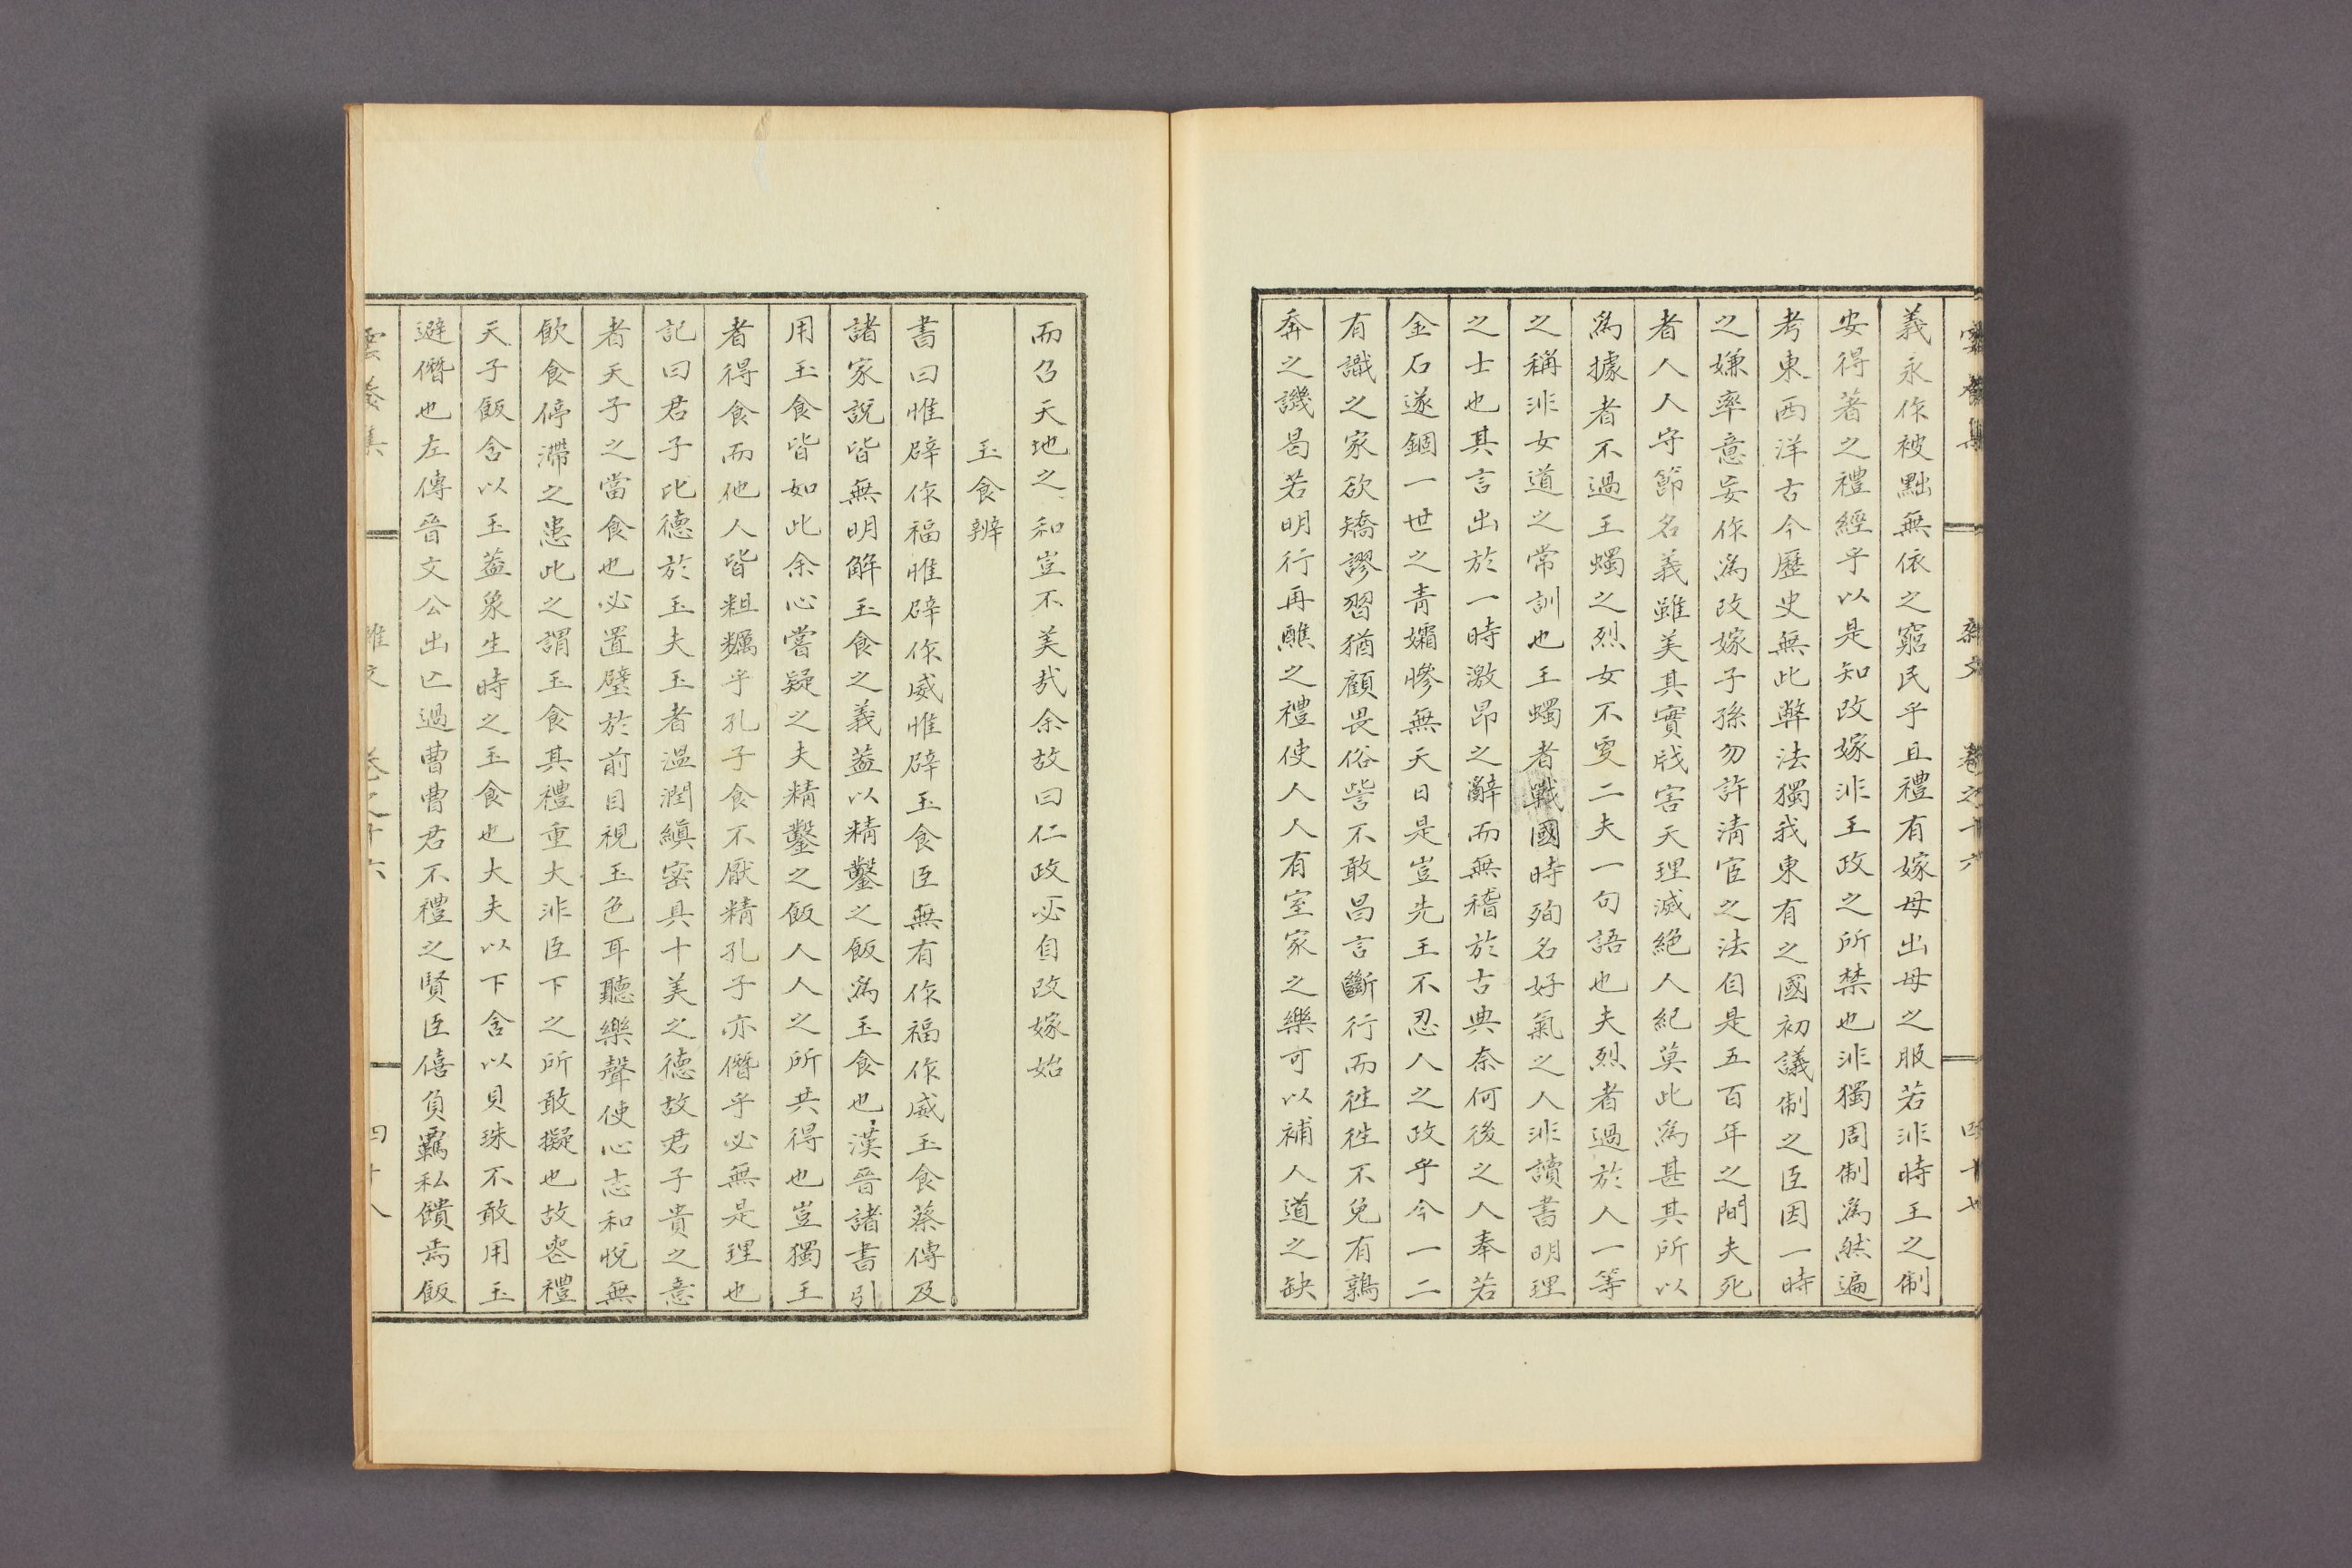 雲養集 雜文 卷之十六 四十七
義永作被黜無依之窮民乎且禮有嫁母出母之服若非時王之制
安得著之禮經乎以是知改嫁非王政之所禁也非獨周制爲然遍
考東西洋古今歷史無此弊法獨我東有之國初議制之臣因一時
之嫌率意妄作爲改嫁子孫勿許淸宦之法自是五百年之間夫死
者人人守節名義雖美其實戕害天理滅絕人紀莫此爲甚其所以
爲據者不過王蠋之烈女不更二夫一句語也夫烈者過於人一等
之稱非女道之常訓也王蠋者戰國時殉名好氣之人非讀書明理
之士也其言出於一時激昂之辭而無稽於古典奈何後之人奉若
金石遂錮一世之靑孀慘無天日是豈先王不忍人之政乎今一二
有識之家欲矯謬習猶顧畏俗訾不敢昌言斷行而徃徃不免有鶉
奔之譏曷若明行再醮之禮使人人有室家之樂可以補人道之缺
而召天地之和豈不美哉余故曰仁政必自改嫁始
玉食辨
書曰惟辟作福惟辟作威惟辟玉食臣無有作福作威玉食蔡傳及
諸家說皆無明解玉食之義蓋以精鑿之飯爲玉食也漢晉諸書引
用玉食皆如此余心嘗疑之夫精鑿之飯人人之所共得也豈獨王
者得食而他人皆粗糲乎孔子食不厭精孔子亦僭乎必無是理也
記曰君子比德於玉夫玉者溫潤縝密具十美之德故君子貴之意
者天子之當食也必置璧於前目視玉色耳聽樂聲使心志和悅無
飮食停滯之患此之謂玉食其禮重大非臣下之所敢擬也故喪禮
天子飯含以玉蓋象生時之玉食也大夫以下含以貝珠不敢用玉
避僭也左傳晉文公出亡過曹曹君不禮之賢臣僖負羈私饋焉飯
雲養集 雜文 卷之十六 四十八